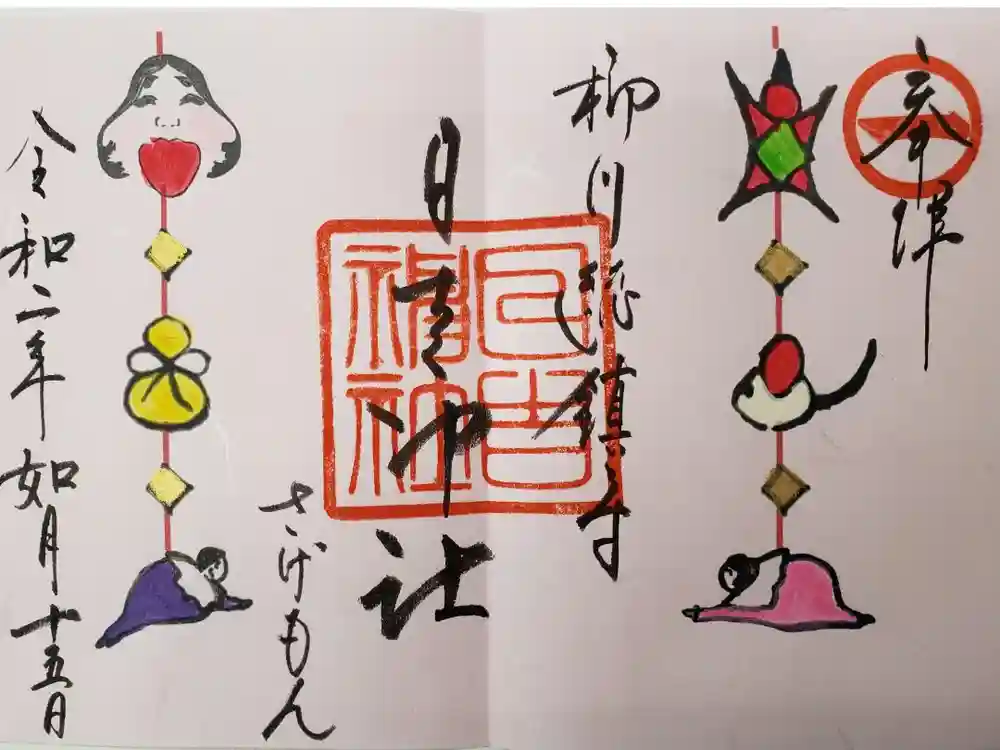 奉拝
柳川総鎮守
日吉神社
日吉
神社
さげもん
令和二年如月十五日